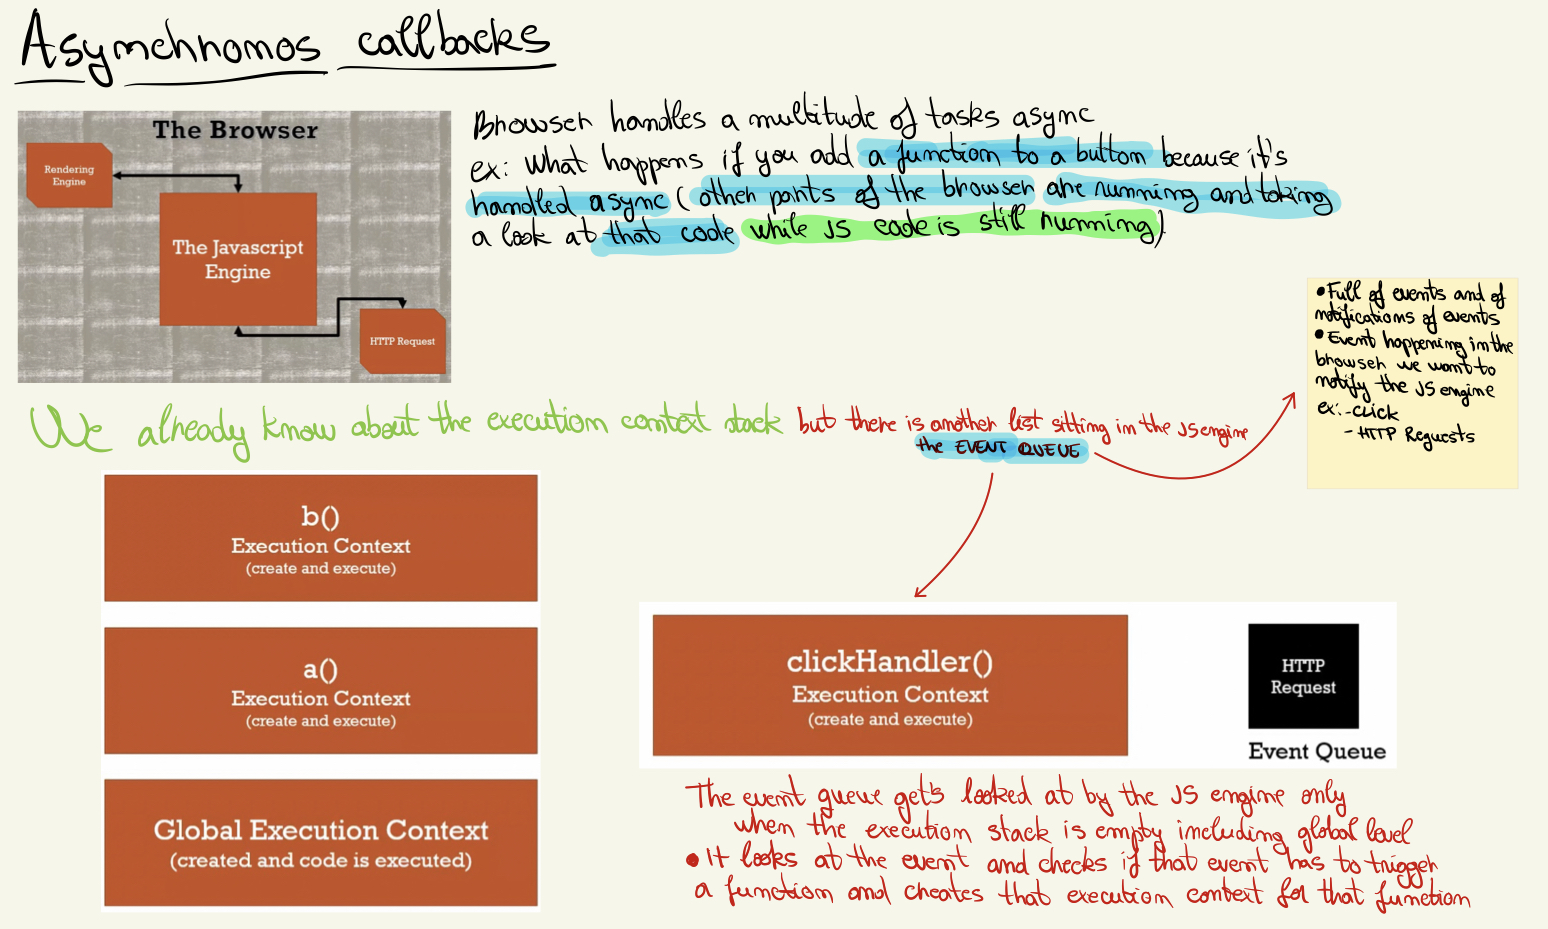 Asynchronos callbacks
The Browser
Rendering
Engine
The Javascript
Engine
HTTP Request
Browser handles a multitude of tasks async
ex: What happens if you add a function to a button because it's
handled async (other parts of the browser are running and taking
a look at that code while JS code is still running)
• Full of events and of
notifications of events
• Event happening in the
browser we want to
notify the JS engine
ex: - click
- HTTP Requests
We already know about the execution context stack but there is another list sitting in the JS engine
the EVENT QUEUE
b()
Execution Context
(create and execute)
a()
Execution Context
(create and execute)
Global Execution Context
(created and code is executed)
clickHandler()
Execution Context
(create and execute)
HTTP
Request
Event Queue
The event queue gets looked at by the JS engine only
when the execution stack is empty including global level
• It looks at the event and checks if that event has to trigger
a function and creates that execution context for that function